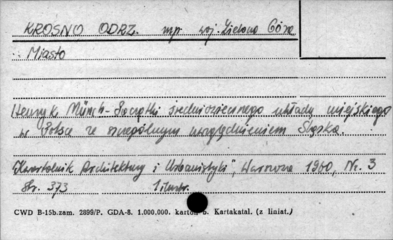 KROSNO ODRZ. mp. woj. Zielona Góra
Miasto
Henryk Münch - Początki średniowiecznego układu miejskiego
w Polsce ze szczególnym uwzględnieniem Śląska.
"Kwartalnik Architektury i Urbanistyki", Warszawa 1960, Nr. 3
Str. 373 1 ilustr.
CWD B-15b.zam. 2899/P. GDA-8. 1.000.000. karton b. Kartakatal. (z liniat.)